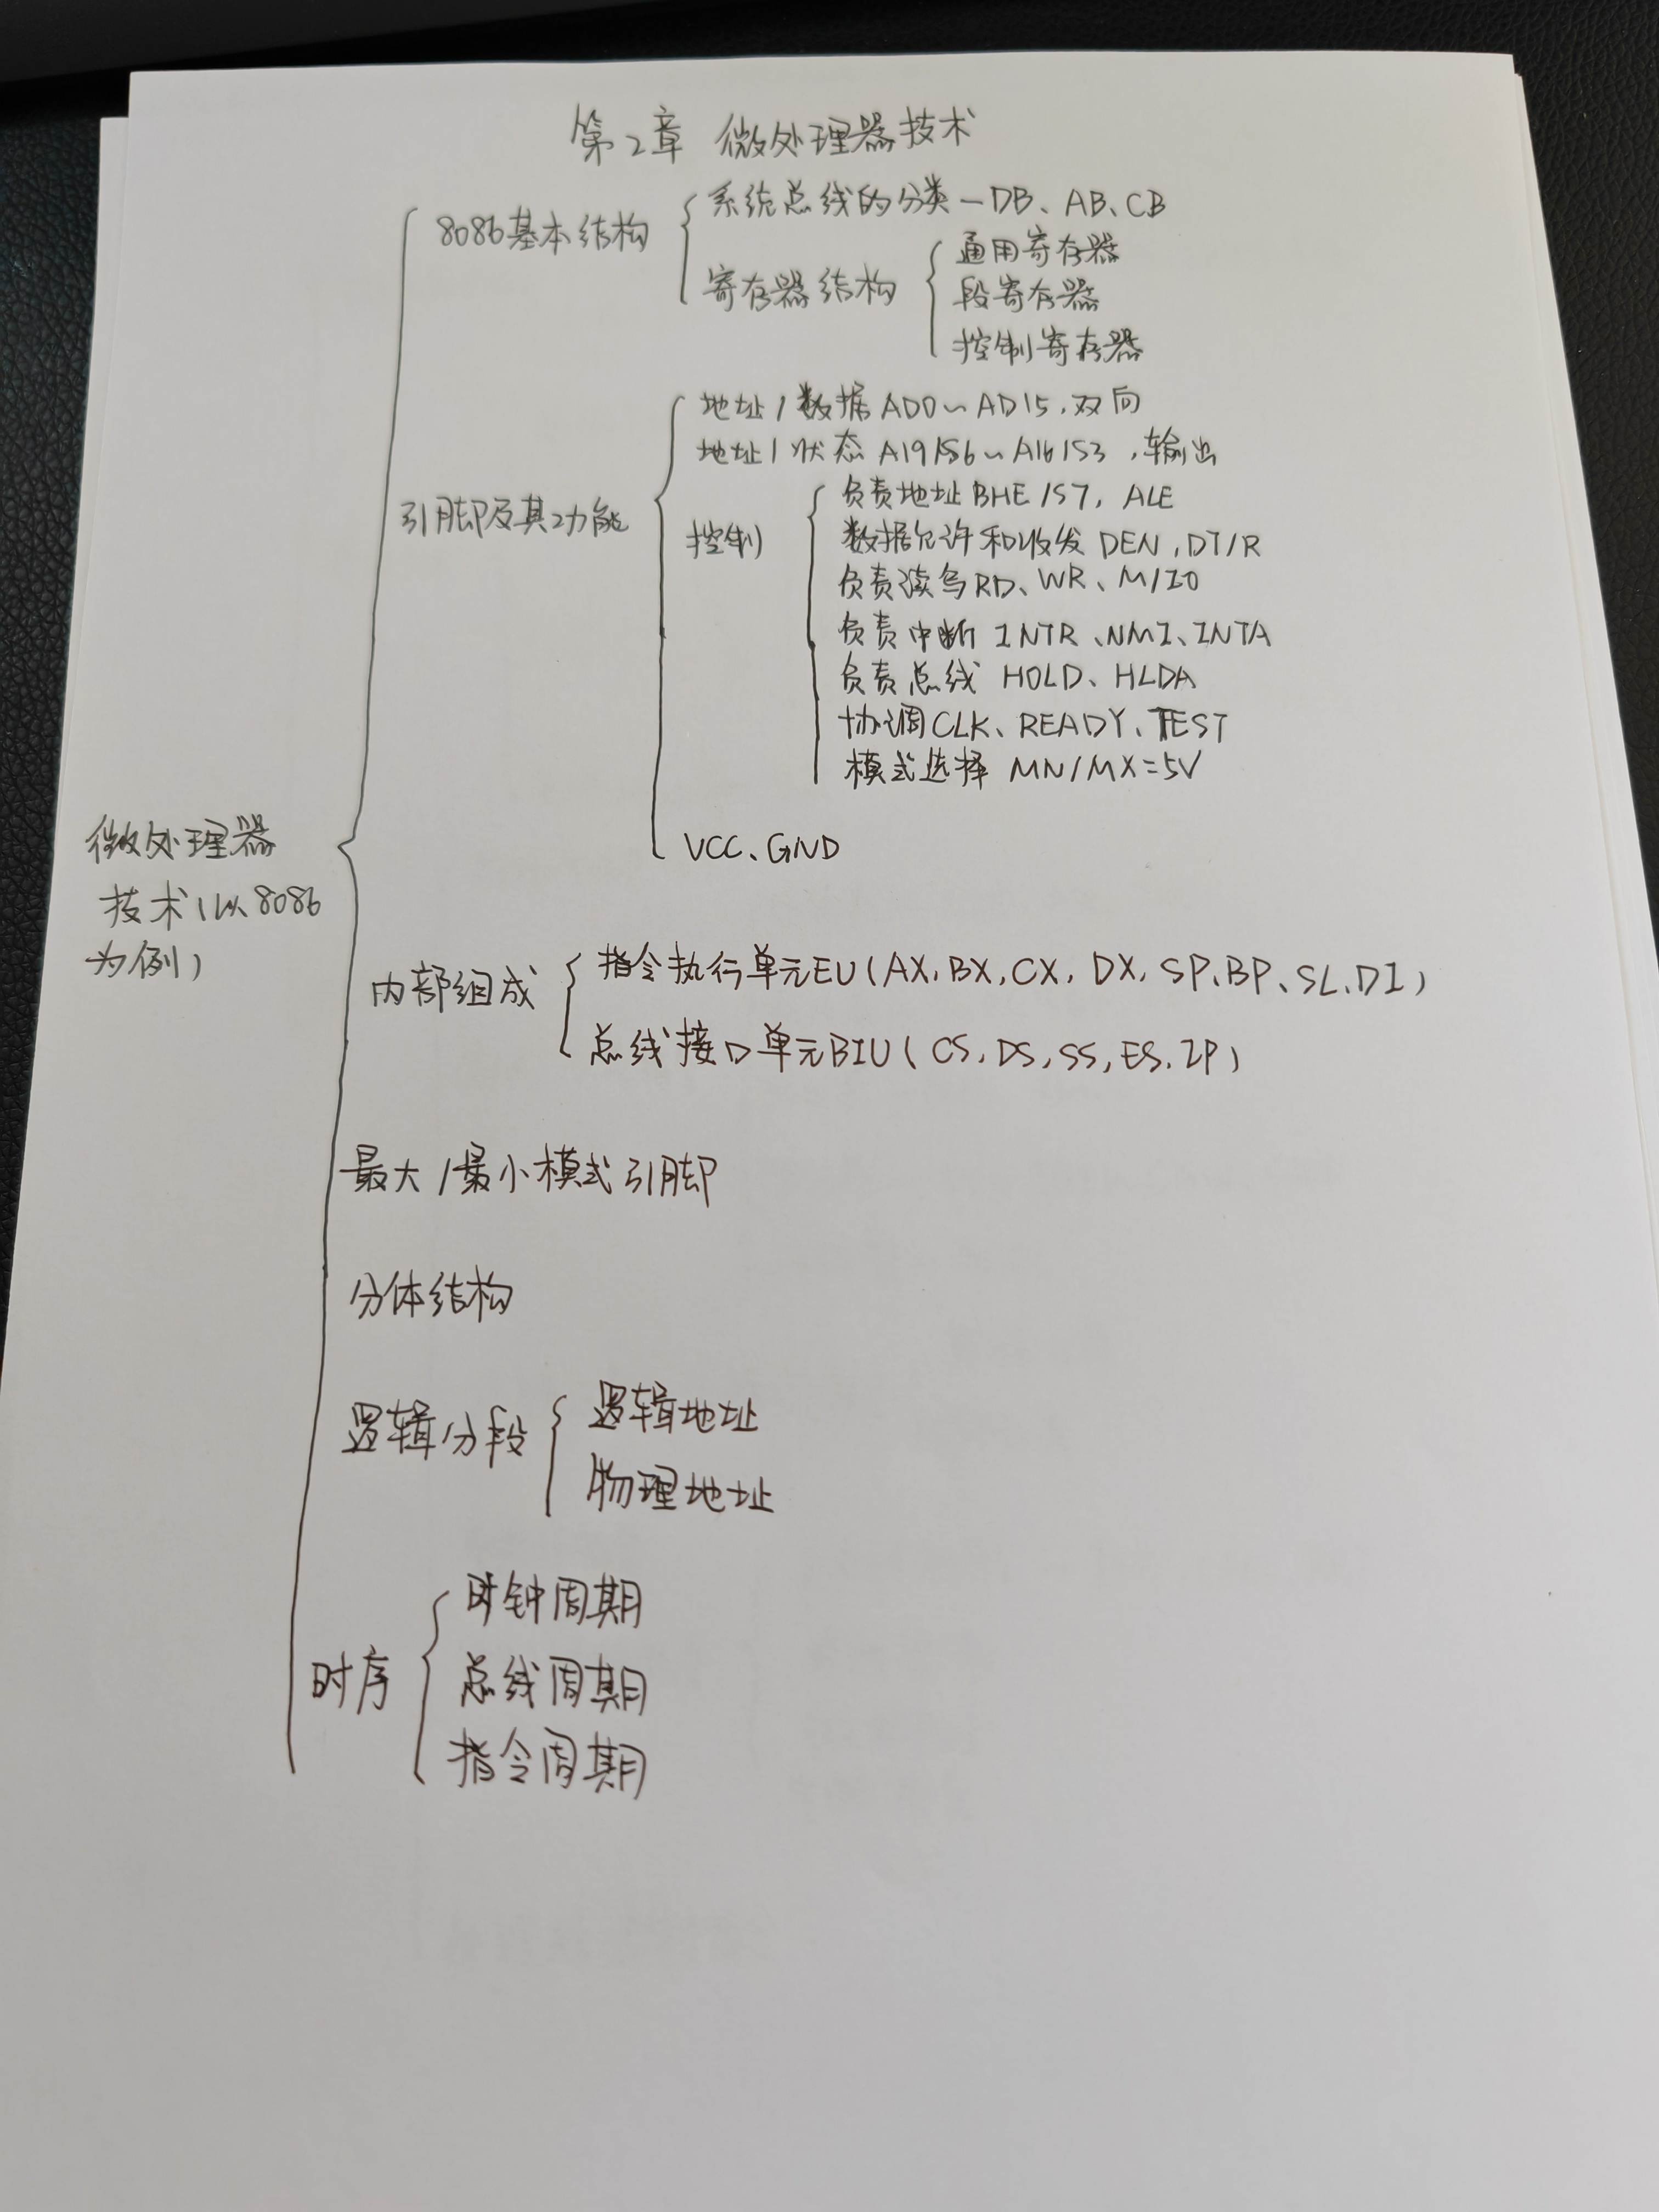 第2章 微处理器技术
8086基本结构
系统总线的分类—DB、AB、CB
寄存器结构
通用寄存器
段寄存器
控制寄存器
引脚及其功能
地址/数据 AD0~AD15,双向
地址/状态 A19/S6~A16/S3,输出
控制
负责地址BHE/S7, ALE
数据允许和收发 DEN, DT/R
负责读写RD、WR、M/IO
负责中断 INTR、NMI、INTA
负责总线 HOLD、HLDA
协调CLK、READY、TEST
模式选择 MN/MX=5V
VCC、GND
微处理器
技术(以8086
为例)
内部组成
指令执行单元EU(AX,BX,CX, DX, SP、BP、SL、DI)
总线接口单元BIU( CS, DS, SS, ES, IP)
最大/最小模式引脚
分体结构
逻辑分段
逻辑地址
物理地址
时序
时钟周期
总线周期
指令周期